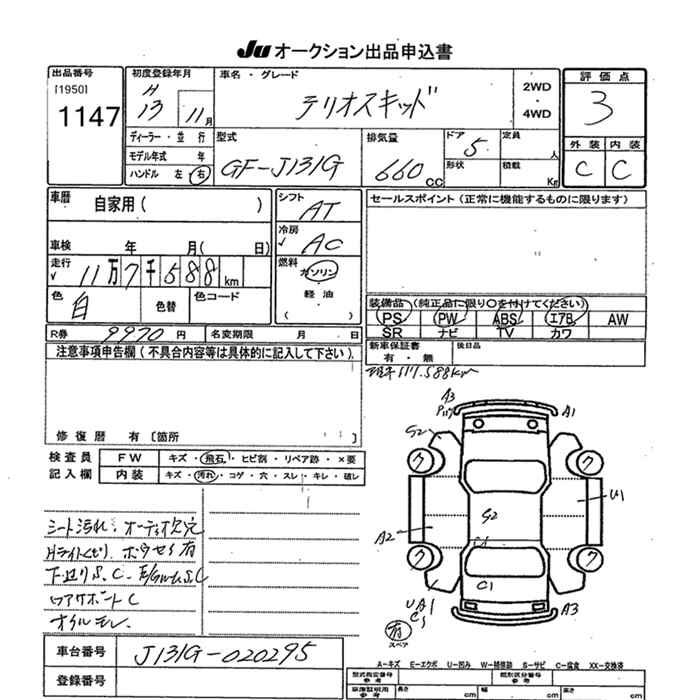 JU オークション出品申込書
出品番号
[1950]
1147
初度登録年月
H
13 11月
車名・グレード
テリオスキッド
2WD
・
4WD
評価点
3
外装 内装
C C
ディーラー・並行
モデル年式 年
ハンドル 左 右
型式
GF-J131G
排気量
660 cc
ドア 5
形状
定員 人
積載 Kg
車歴 自家用( )
車検 年 月( 日)
走行 11万7千588km
色 白 色替 色コード
R券 9970円 名変期限 月 日
シフト AT
冷房 AC
燃料 ガソリン
軽油
( )
セールスポイント(正常に機能するものに限ります)
装備品(純正品に限り○を付けてください)
PS PW ABS エアB AW
SR ナビ TV カワ
新車保証書 後日品
有・無
注意事項申告欄(不具合内容等は具体的に記入して下さい)
117.588km
修復歴 有〔箇所 〕
検査員 FW キズ・飛石・ヒビ割・リペア跡・×要
記入欄 内装 キズ・汚れ・コゲ・穴・スレ・キレ・破レ
シート汚れ. オーディオ欠 穴
Hライトくもり ホウセキ有
下廻りS.C.
リアサポートC
オイルモレ.
A3
A1
G2
ワ ワ
U1
A2
G2
ワ ワ
C1
UA1
C1
A3
有
スペア
車台番号 J131G-020295
登録番号
A-キズ E-エクボ U-凹み W-補修跡 S-サビ C-腐食 XX-交換済
型式指定番号
参考
類別区分番号
参考
車庫証明用
参考
長さ cm 幅 cm 高さ cm